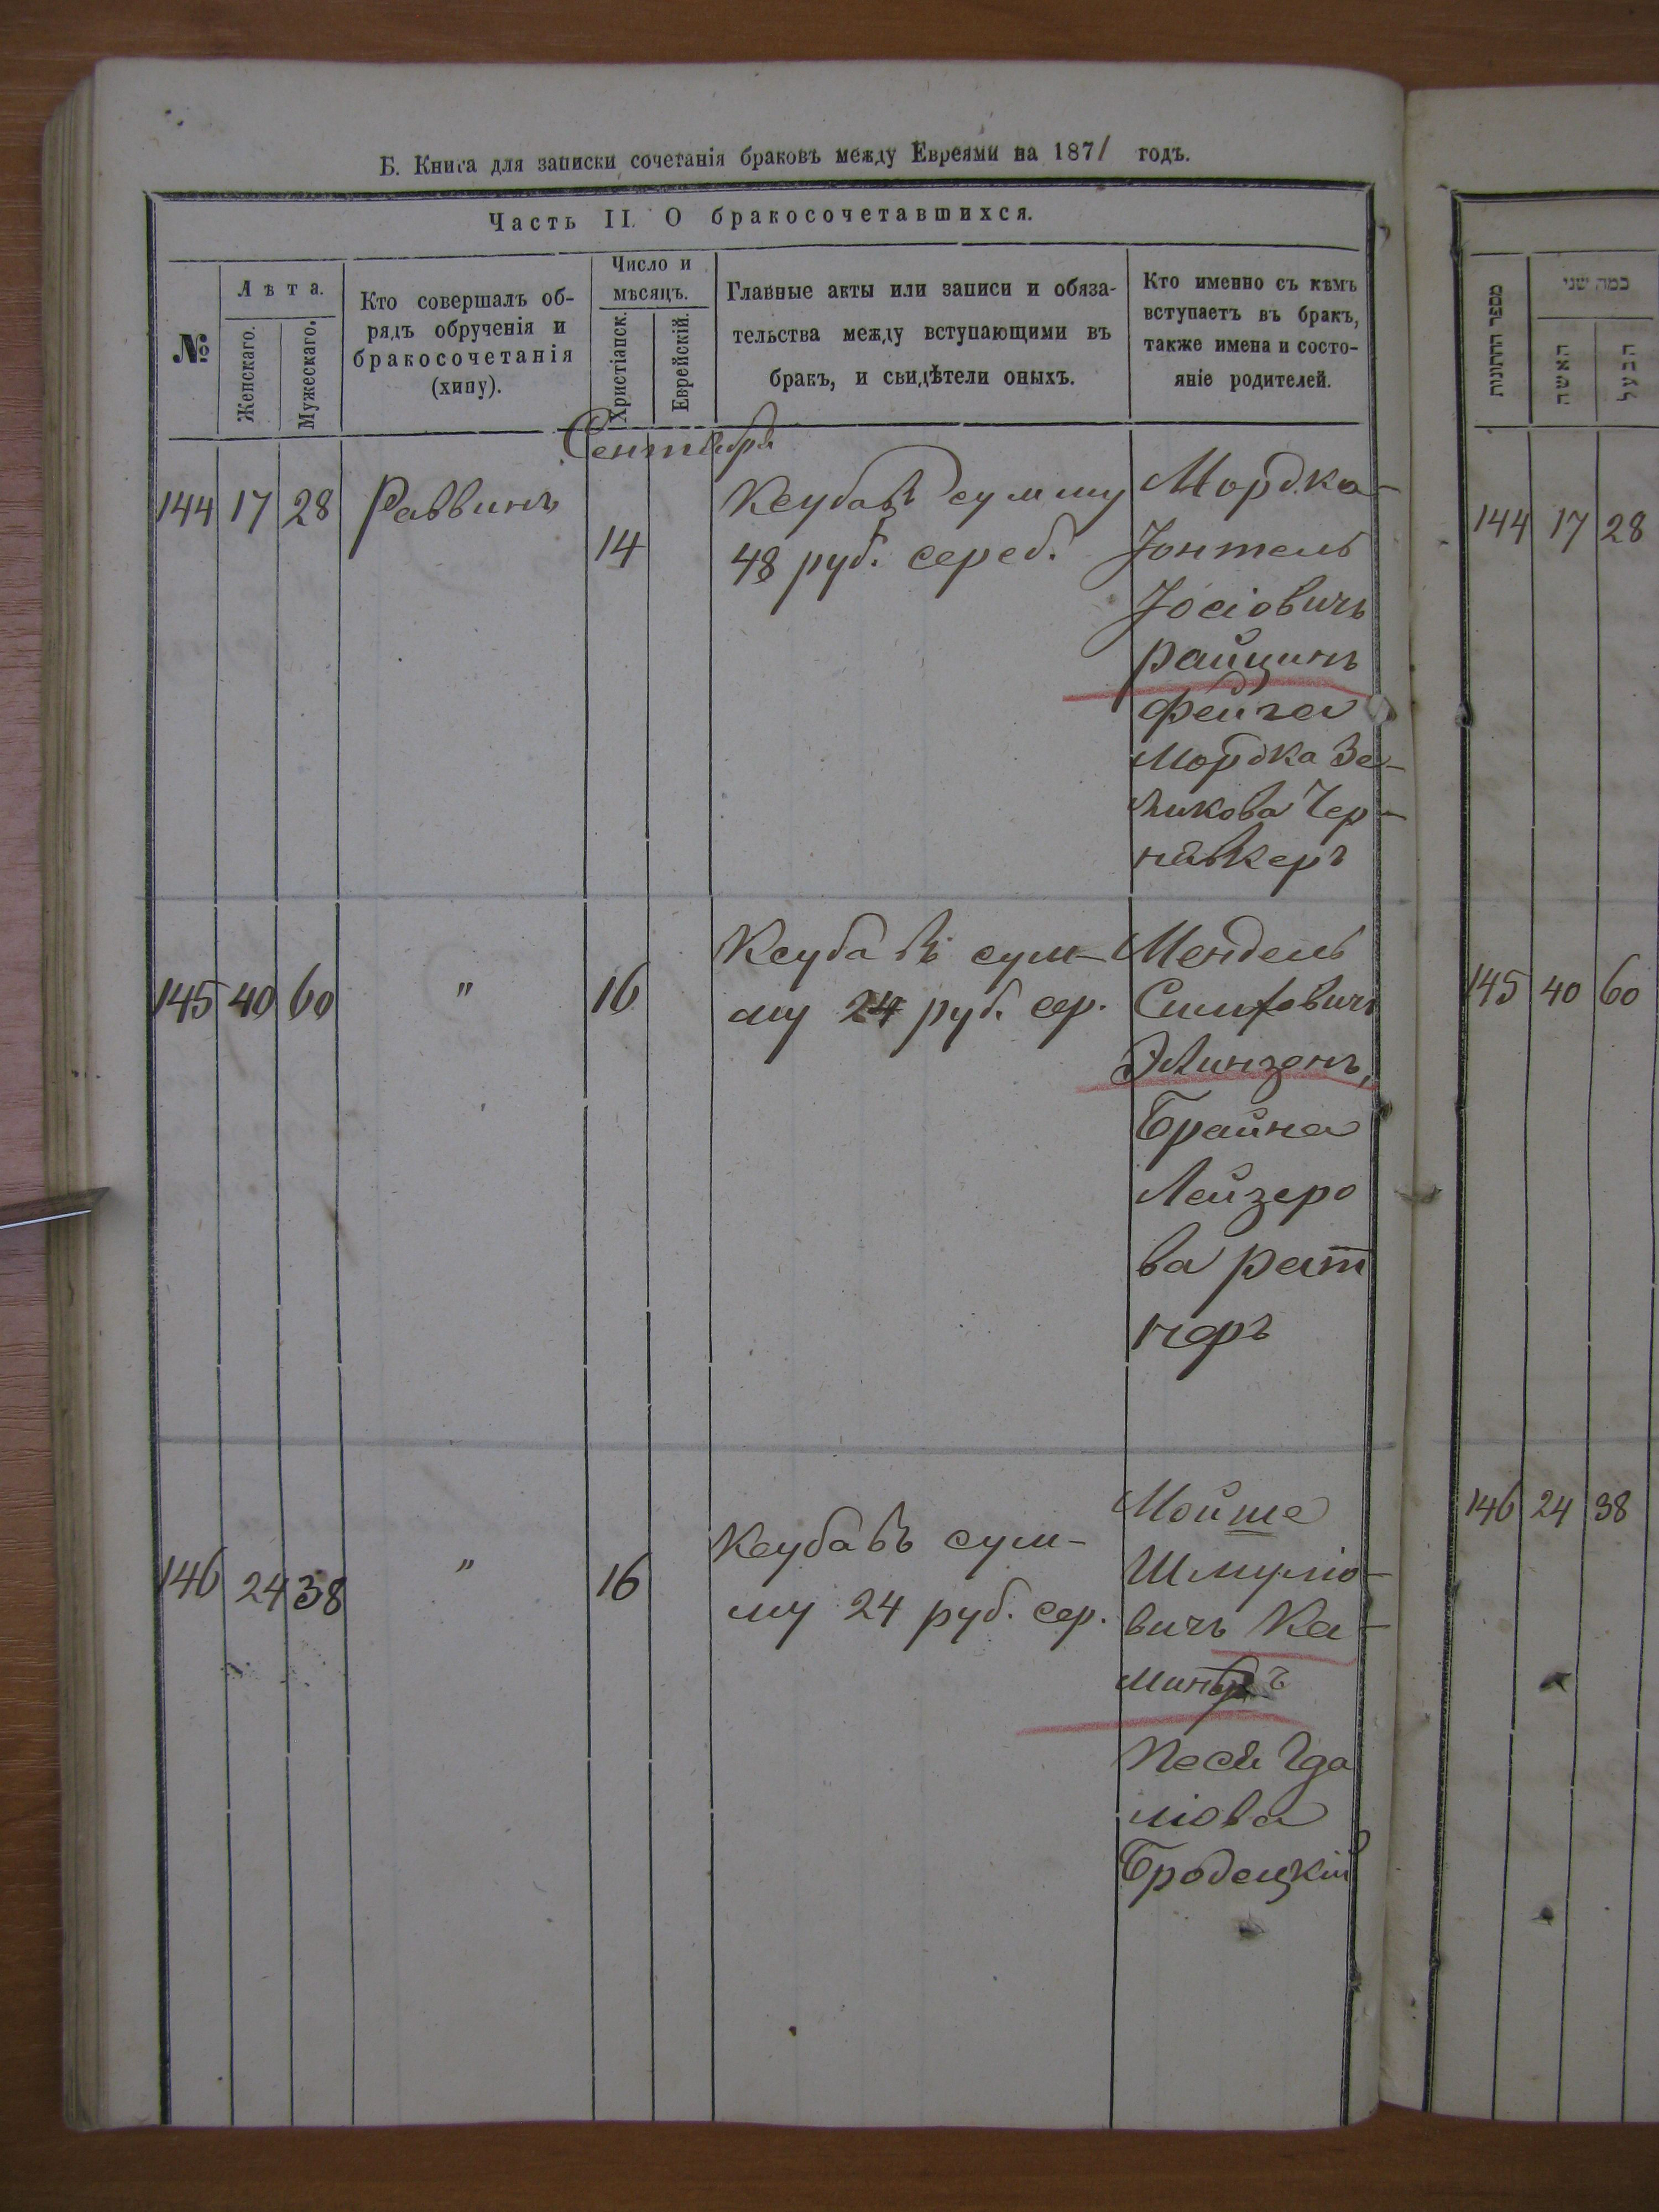 Б. Книга для записки сочетанія браковъ между Евреями на 1871 годъ.
Часть II. О бракосочетавшихся.
№
Лѣта.
Женскаго.
Мужескаго.
Кто совершалъ об-
рядъ обрученія и
бракосочетанія
(хипу).
Число и
мѣсяцъ.
Христіанск.
Еврейскій.
Главные акты или записи и обяза-
тельства между вступающими въ
бракъ, и свидѣтели оныхъ.
Кто именно съ кѣмъ
вступаетъ въ бракъ,
также имена и состо-
яніе родителей.
מספר החתונות
כמה שני
האשה
הבעל
Сентября
144 17 28 Раввинъ 14
Ксубавъ сумму
48 руб. сереб.
Мордка-
Іонтель
Іосіовичъ
Райцинъ
Фейга
Мордка Зе-
ликова Чер-
нявкеръ
144 17 28
145 40 60 " 16
Ксуба въ сум-
му 24 руб. сер.
Мендель
Элинзонъ,
Брайна
Лейзеро
ва Рат
неръ
145 40 60
146 24 38 " 16
Ксуба въ сум-
му 24 руб. сер.
Мойше
Шмуліо-
вичъ Ка-
Песи Гда
ліова
Бродецкій
146 24 38